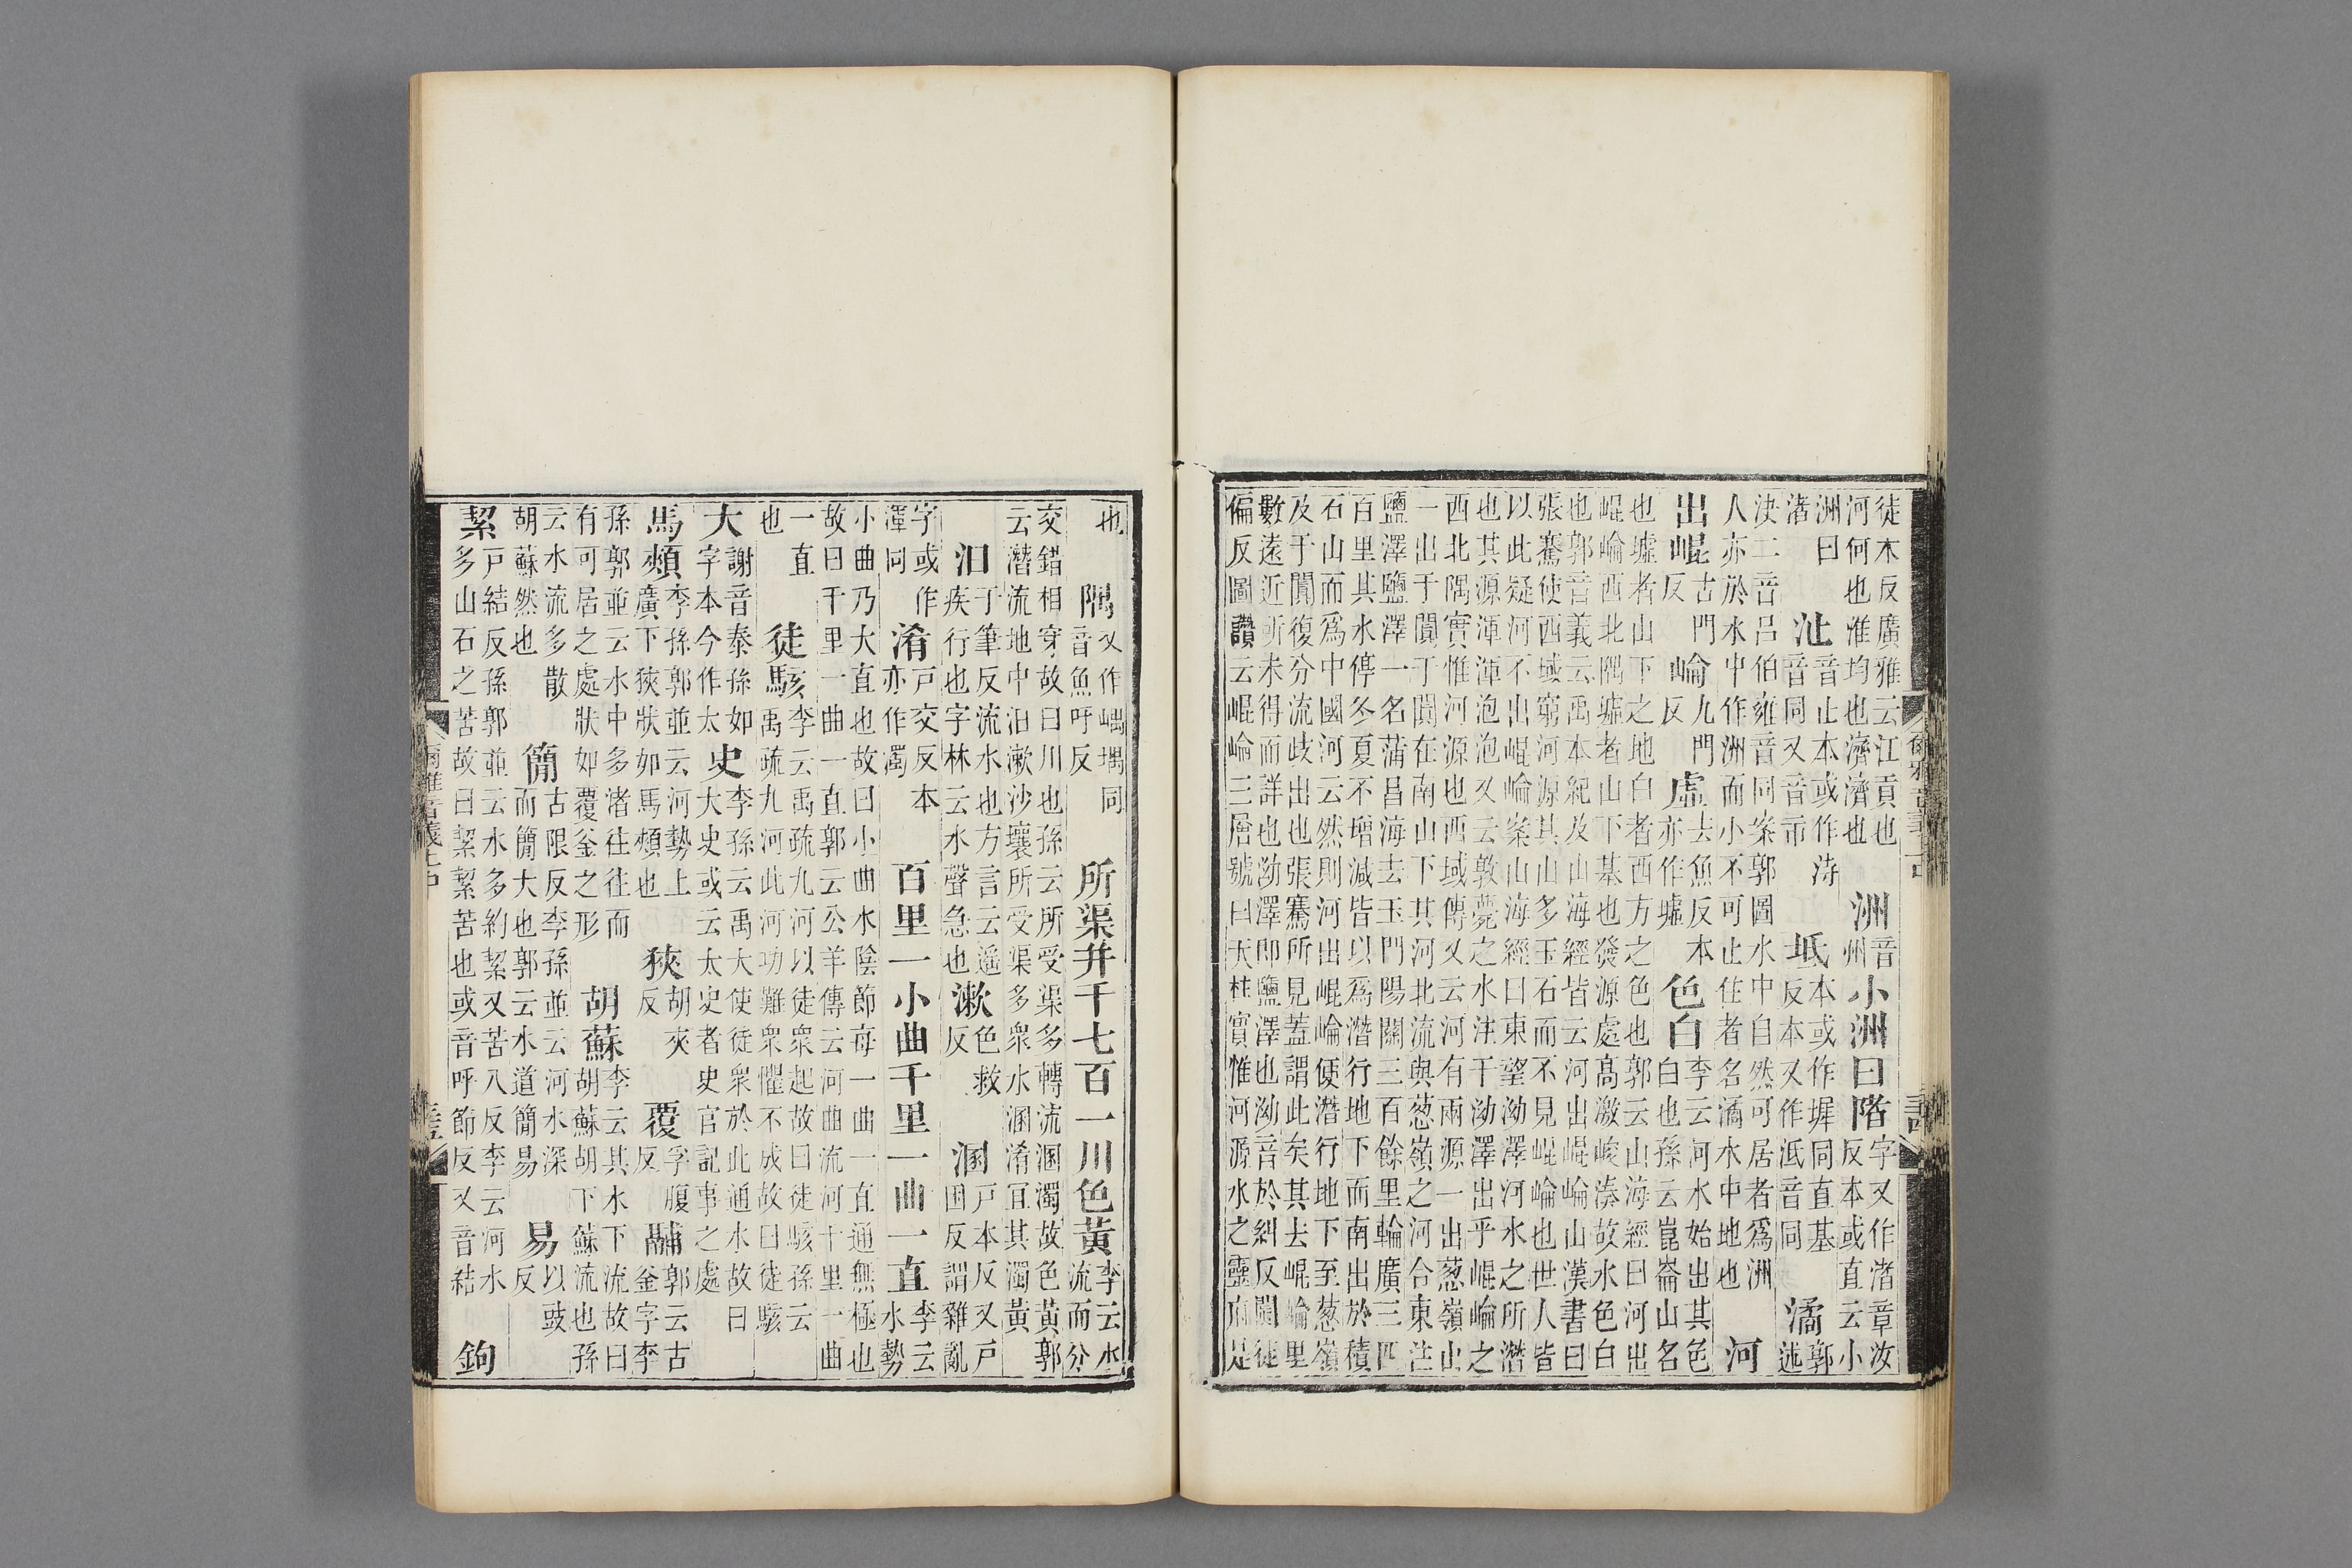 徒木反廣雅云江貢也河何也淮均也濟濟也 洲 音州 小洲曰陼 字又作渚章汝反本或直云小
洲曰渚 沚 音止本或作洔音同又音市 坻 本或作墀同直基反本又作泜音同 潏 郭述
決二音呂伯雍音同案郭圖水中自然可居者爲洲人亦於水中作洲而小不可止住者名潏水中地也 河
出崐 古門反 崘 九門反 虛 去魚反本亦作墟 色白 李云河水始出其色白也孫云崑崙山名
也墟者山下之地白者西方之色也郭云山海經曰河出崐崘西北隅墟者山下基也發源處高激峻湊故水色白
也郭音義云禹本紀及山海經皆云河出崐崘山漢書曰張騫使西域窮河源其山多玉石而不見崐崘也世人皆
以此疑河不出崐崘案山海經曰東望泑澤河水之所潛也其源渾渾泡泡又云敦薨之水注于泑澤出乎崐崘之
西北隅實惟河源也西域傳又云河有兩源一出葱嶺山一出于闐于闐在南山下其河北流與葱嶺之河合東注
鹽澤鹽澤一名蒲昌海去玉門陽關三百餘里輪廣三四百里其水停冬夏不增減皆以爲潛行地下而南出於積
石山而爲中國河云然則河出崐崘便潛行地下至葱嶺及于闐復分流歧出也張騫所見蓋謂此矣其去崐崘里
數遠近所未得而詳也泑澤即鹽澤也泑音於糾反闐徒偏反圖讚云崐崘三層號曰天柱實惟河源水之靈府是
也 隅 又作嵎堣同音魚吁反 所渠幷千七百一川色黃 李云水流而分
交錯相穿故曰川也孫云所受渠多轉流溷濁故色黃郭云潛流地中汩漱沙壤所受渠多衆水溷淆宜其濁黃
汩 于筆反流水也方言云遥疾行也字林云水聲急也 漱 色救反 溷 戸本反又戸困反謂雜亂
字或作渾同 淆 戸交反本亦作濁 百里一小曲千里一曲一直 李云水勢
小曲乃大直也故曰小曲水陰節每一曲一直通無極也故曰千里一曲一直郭云公羊傳云河曲流河十里一曲
一直也 徒駭 李云禹疏九河以徒衆起故曰徒駭孫云禹疏九河此河功難衆懼不成故曰徒駭
大 謝音泰孫如字本今作太 史 李孫云禹大使徒衆於此通水故曰大史或云太史者史官記事之處
馬頰 李孫郭並云河勢上廣下狹狀如馬頰也 狹 胡夾反 覆 孚腹反 鬴 郭云古釜字李
孫郭並云水中多渚往往而有可居之處狀如覆釜之形 胡蘇 李云其水下流故曰胡蘇胡下蘇流也孫
云水流多散胡蘇然也 簡 古限反李孫並云河水深而簡大也郭云水道簡易 易 以豉反
絜 戸結反孫郭並云水多約絜又苦八反李云河水多山石之苦故曰絜絜苦也或音呼節反又音結 鉤